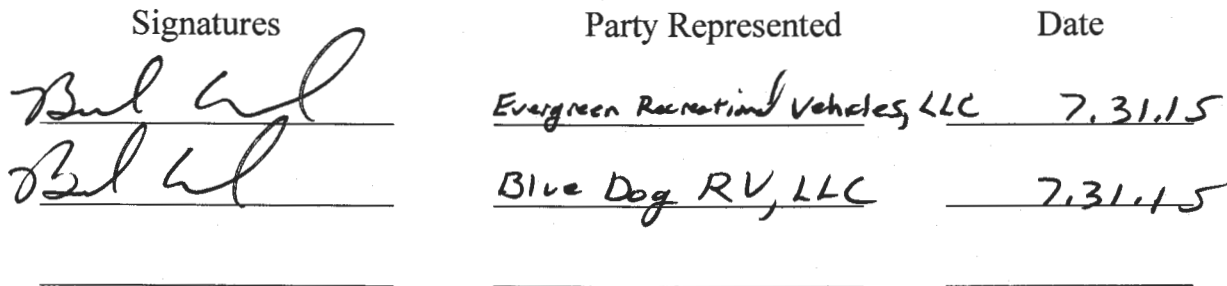 Signatures Party Represented Date
Evergreen Recreational Vehicles, LLC 7.31.15
Blue Dog RV, LLC 7.31.15